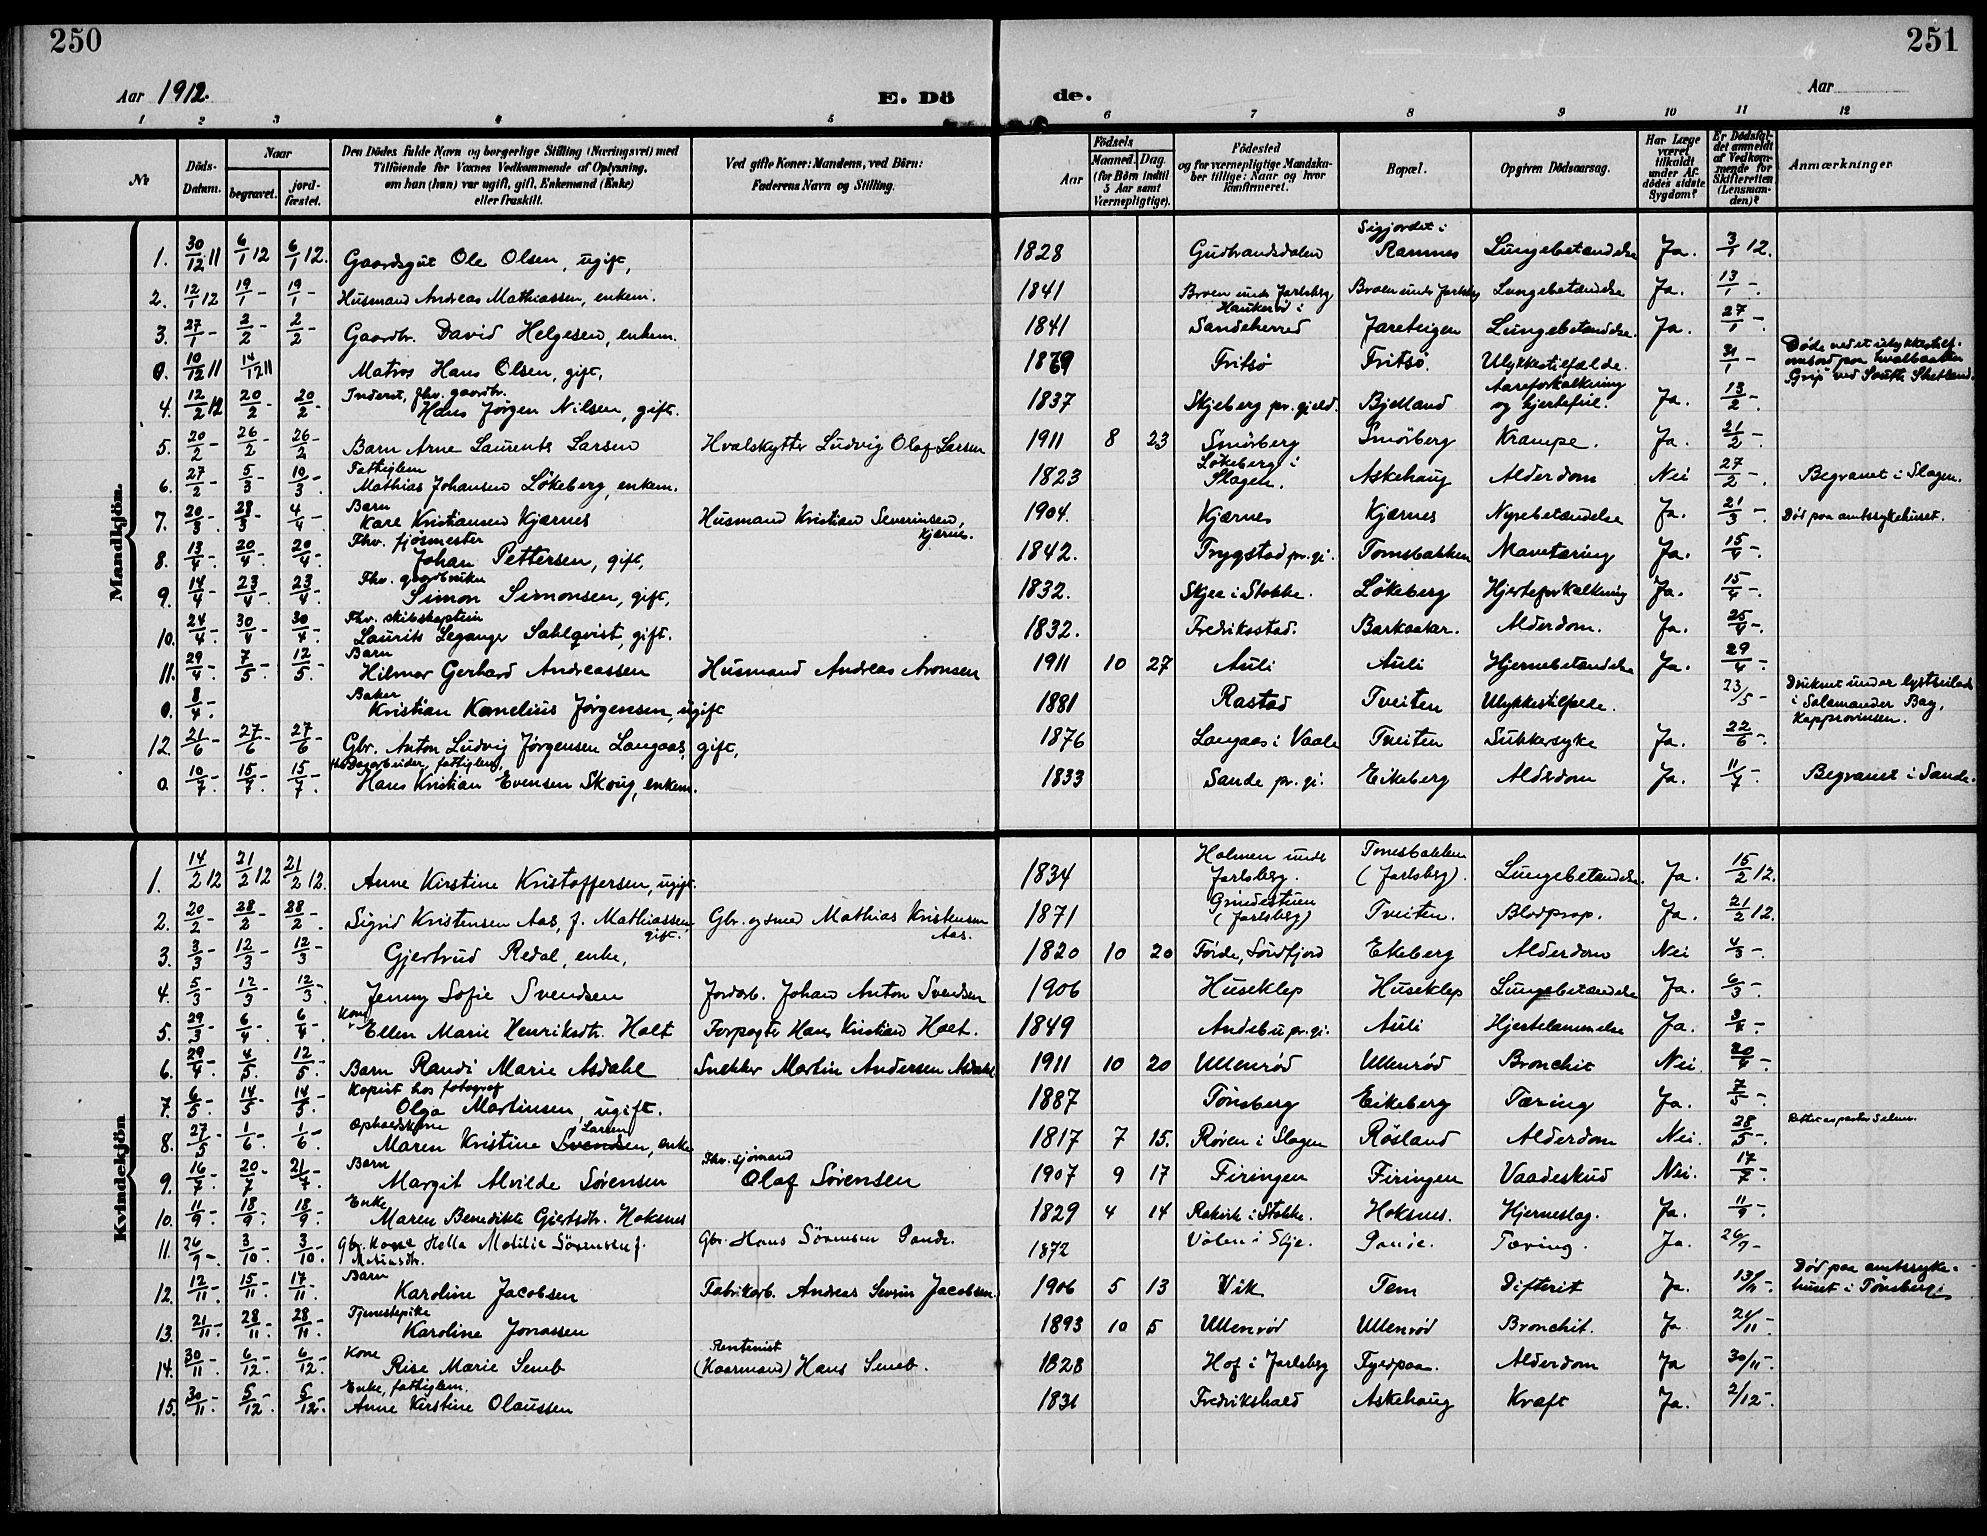 250
251
Aar 1912.
E. Dö de.
Aar
1 2 3 4 5 6 7 8 9 10 11 12
№ | Döds-Datum. | Naar begravet. | jord-fæstet. | Den Dödes fulde Navn og borgerlige Stilling (Næringsvei) med Tilföiende for Voxnes Vedkommende af Oplysning, om han (hun) var ugift, gift, Enkemand (Enke) eller fraskilt. | Ved gifte Koner: Mandens, ved Börn: Faderens Navn og Stilling. | Födsels Aar | Maaned. Dag. (for Börn indtil 5 Aar samt Værnepligtige). | Födested og for værnepligtige Mandskaber tillige: Naar og hvor konfirmeret. | Bopæl. | Opgiven Dödsaarsag. | Har Læge været tilkaldt under Afdödes sidste Sygdom? | Er Dödsfaldet anmeldt af Vedkommende for Skifteretten (Lensmanden)? | Anmærkninger
Mandkjön.
1. 30/12 11 6/1 12 6/1 12. Gaardsgut Ole Olsen, ugift, 1828 Gudbrandsdalen Sigjordet i Ramnes Lungebetændelse Ja. 3/1 12.
2. 12/1 12 19/1 - 19/1 - Husmand Andreas Mathiassen, enkem. 1841 Broen under Jarlsberg Broen under Jarlsberg Lungebetændelse Ja. 13/1 -.
3. 27/1 - 2/2 - 2/2 - Gaardbr. David Helgesen, enkem. 1841 Haukerød i Sandeherred Jareteigen Lungebetændelse. Ja. 27/1 -.
0. 10/12 11 14/12 11 Matros Hans Olsen, gift, 1879 Fritsø Fritsø. Ulykkestilfælde. 31/1 - Døde ved et ulykkestilf. ombord paa hvalbaaten "Grip" ved South Shetland.
4. 12/2 12 20/2 - 20/2 - Inderst, fhv. gaardbr. Hans Jørgen Nilsen, gift. 1837 Skjeberg pr.gjeld. Bjelland Aareforkalkning og hjertefeil. Ja. 13/2 -.
5. 20/2 - 26/2 - 26/2 - Barn Arne Laurents Larsen Hvalskytter Ludvig Olaf Larsen 1911 8 23 Smørberg Smørberg Krampe. Ja. 21/2 -.
6. 27/2 - 5/3 - 10/3 - Fattiglem Mathias Johansen Løkeberg, enkem. 1823 Løkeberg i Slagen. Askehaug Alderdom Nei 27/2 -. Begravet i Slagen.
7. 20/3 - 28/3 - 4/4 - Barn Kare Kristiansen Kjærnes Husmand Kristian Severinsen, Kjærnes. 1904. Kjærnes Kjærnes Nyrebetændelse Ja. 21/3 -. Død paa amtssykehuset.
8. 13/4 - 20/4 - 20/4 - Fhv. fjøsmester Johan Pettersen, gift, 1842. Trygstad pr.gj. Tomsbakken Mavetæring Ja. 15/4 -.
9. 14/4 - 23/4 - 23/4 - Fhv. gaardbruker Simon Simonsen, gift, 1832. Skjee i Stokke. Løkeberg Hjerteforkalkning Ja. 15/4 -.
10. 24/4 - 30/4 - 30/4 - Fhv. skibskaptein Laurits Leganger Sahlqvist, gift. 1832. Fredriksstad. Barkaaker. Alderdom. Ja. 25/4 -.
11. 29/4 - 7/5 - 12/5 - Barn Hilmar Gerhard Andreassen Husmand Andreas Aronsen 1911 10 27 Auli Auli Hjernebetændelse Ja. 29/4 -.
0. 8/4 - Baker Kristian Kornelius Jørgensen, ugift 1881 Rastad Tveiten Ulykkestilfælde. 23/5 - Druknet under lystseilads i Salamander Bay, Kapprovinsen.
12. 21/6 - 27/6 - 27/6 - Gbr. Anton Ludvig Jørgensen Langaas, gift, 1876 Langaas i Vaale Tveiten Sukkersyke Ja. 22/6 -.
0. 10/7 - 15/7 - 15/7 - fhv. Dagarbeider, fattiglem, Hans Kristian Evensen Skoug, enkem. 1833 Sande pr.gj. Eikeberg Alderdom Ja. 11/7 -. Begravet i Sande.
Kvindekjön
1. 14/2 12 21/2 12 21/2 12. Anne Kirstine Kristoffersen, ugift. 1834 Holmen under Jarlsberg. Tomsbakken (Jarlsberg). Lungebetændelse. Ja. 15/2 12.
2. 20/2 - 28/2 - 28/2 - Sigrid Kristensen Aas, f. Mathiassen gift. Gbr. og smed Mathias Kristensen Aas. 1871 Grindestuen (Jarlsberg) Tveiten. Blodprop. Ja. 21/2 12.
3. 3/3 - 12/3 - 12/3 - Gjertrud Redal, enke, 1820 10 20 Førde, Søndfjord Ekeberg Alderdom Nei 4/3 -.
4. 5/3 - 12/3 - 12/3 - Jenny Sofie Svendsen Jordarb. Johan Anton Svendsen 1906 Huseklep Huseklep Lungebetændelse Ja. 6/3 -.
5. 29/3 - 6/4 - 6/4 - Kone Ellen Marie Henriksdtr. Holt Forpagter Hans Kristian Holt. 1849 Andebu pr.gj. Auli Hjertelammelse Ja. 3/4 -.
6. 29/4 - 4/5 - 12/5 - Barn Randi Marie Asdahl Snekker Martin Andersen Asdahl 1911 10 20 Ullenrød Ullenrød Bronchit Nei 20/4 -.
7. 6/5 - 14/5 - 14/5 - Kopist hos fotograf Olga Martinsen, ugift. 1887 Tønsberg Eikeberg Tæring Ja. 7/5 -.
8. 27/5 - 1/6 - 1/6 - Opholdskone Maren Kristine Svendsen Larsen, enke 1817 7 15. Røren i Slagen Røsland Alderdom Nei. 28/5 -.
9. 16/7 - 20/7 - 21/7 - Barn Margit Alvilde Sørensen Fhv. sjømand Olaf Sørensen 1907 9 17 Firingen Firingen Vaadeskud Nei. 17/7 -.
10. 11/9 - 18/9 - 18/9 - Enke Maren Benedikte Gjertsdtr. Hoksnes 1829 4 14 Rakvik i Stokke. Hoksnes. Hjerneslag. Ja. 11/9 -.
11. 26/9 - 3/10 - 3/10 - Gbr. Kone Holla Matilie Sørensen f. Matiasdtr. Gbr. Hans Sørensen 1872 Valen i Skje. Tæring. Ja. 26/9 -
12. 12/11 - 15/11 - 17/11 - Barn Karoline Jacobsen Fabrikarb. Andreas Severin Jacobsen. 1906 5 13 Vik Tem Difterit Ja. 13/11 -. Død paa amtssykehuset i Tønsberg.
13. 21/11 - 28/11 - 28/11 - Tjenestepike Karoline Jonassen 1893 10 5 Ullenrød Ullenrød Bronchit. Ja 21/11 -.
14. 30/11 - 6/12 - 6/12 - Kone Rise Marie Semb Rentenist (Kaarmand) Hans Semb. 1828 Hof i Jarlsberg Fyldpaa. Alderdom Ja 30/11 -.
15. 30/11 - 5/12 - 5/12 - Enke, fattiglem. Anne Kirstine Olaussen 1831 Fredrikshald Askehaug Kræft Ja. 2/12 -.